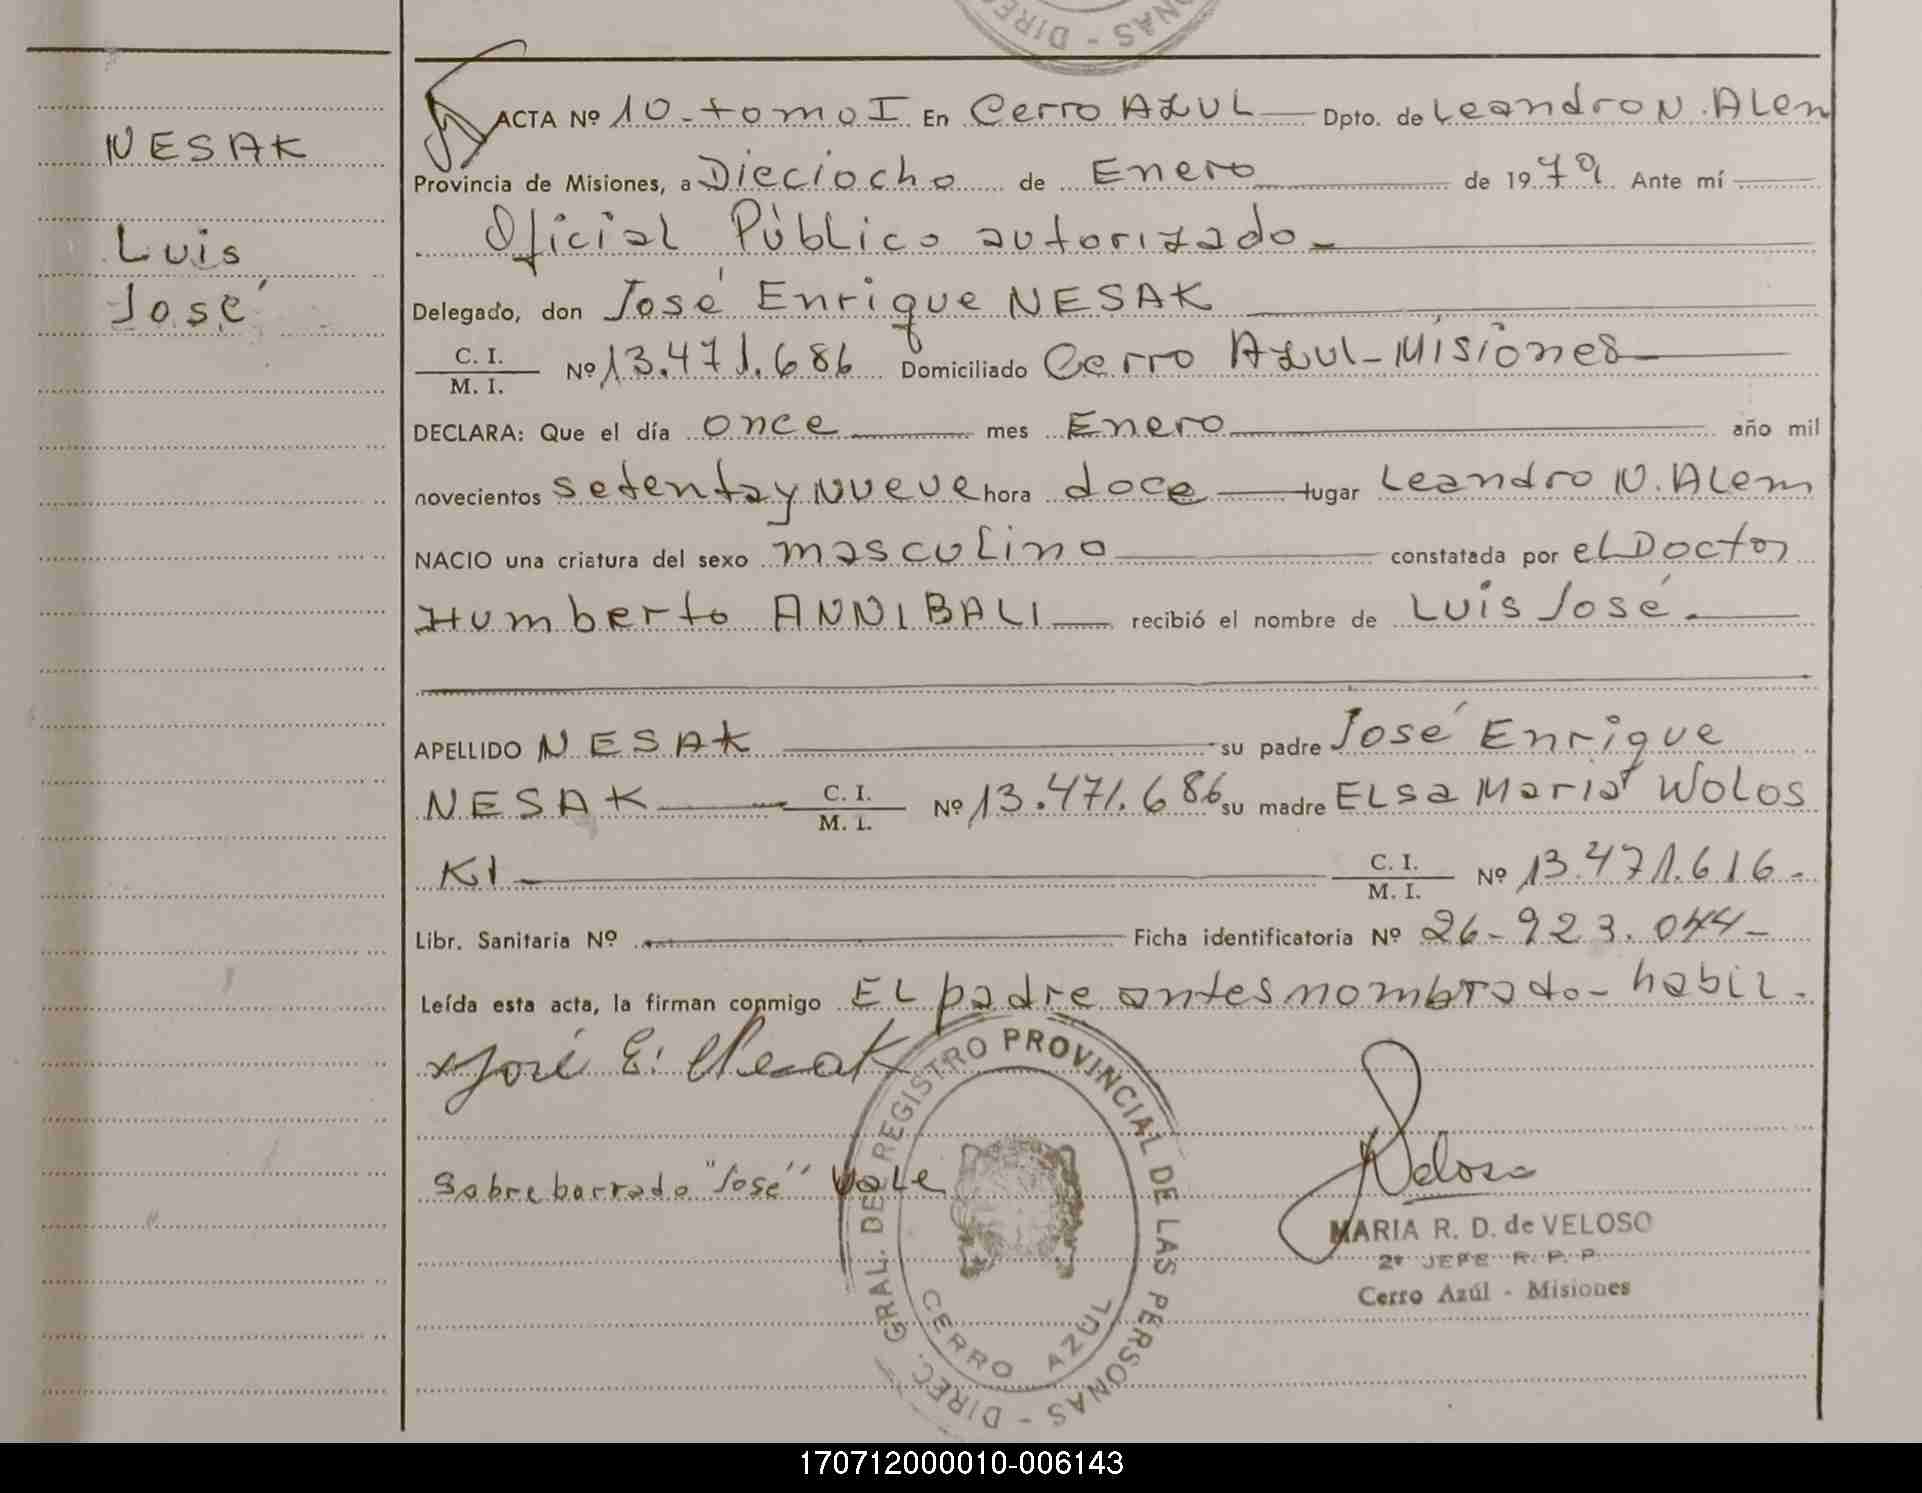 DIREC - PERSONAS
NESAK
Luis
José
ACTA Nº 10 - tomo I En Cerro AZUL Dpto. de Leandro N. Alem
Provincia de Misiones, a Dieciocho de Enero de 1979 Ante mí
Oficial Público autorizado -
Delegado, don José Enrique NESAK
C. I.
M. I. Nº 13.471.686 Domiciliado Cerro Azul - Misiones
DECLARA: Que el día once mes Enero año mil
novecientos setenta y nueve hora doce lugar Leandro N. Alem
NACIO una criatura del sexo masculino constatada por el Doctor
Humberto ANNIBALI recibió el nombre de Luis José.
APELLIDO NESAK su padre José Enrique
NESAK C. I. M. I. Nº 13.471.686 su madre Elsa Maria Wolos
KI C. I. M. I. Nº 13.471.616.
Libr. Sanitaria Nº Ficha identificatoria Nº 26-923.044-
Leída esta acta, la firman conmigo El padre antes nombrado - habil.
José E. Nesak
Sobreborrado "José" Vale
DIREC. GRAL. DEL REGISTRO PROVINCIAL DE LAS PERSONAS -
CERRO AZUL
Veloso
MARIA R. D. de VELOSO
2º JEFE R. P. P.
Cerro Azúl - Misiones
170712000010-006143